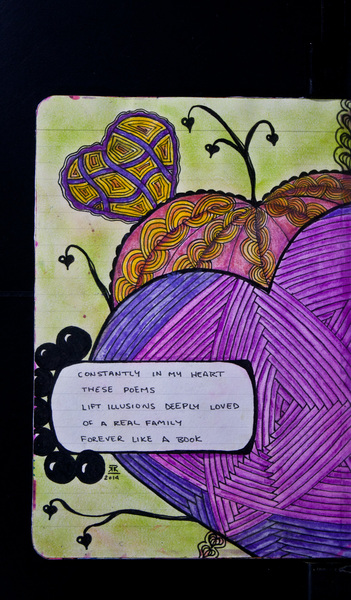 CONSTANTLY IN MY HEART
THESE POEMS
LIFT ILLUSIONS DEEPLY LOVED
OF A REAL FAMILY
FOREVER LIKE A BOOK
2019